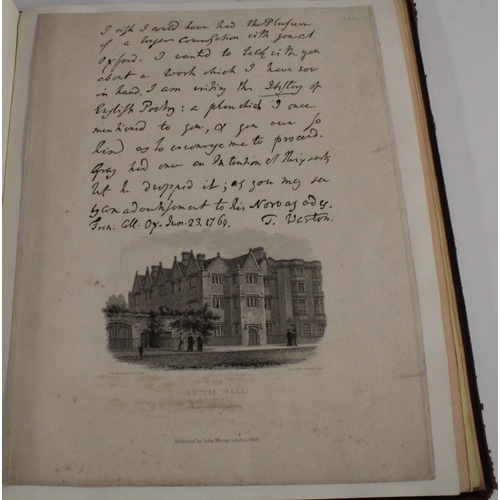 I wish I could have had the Pleasure
of a longer Conversation with you at
Oxford. I wanted to talk with you
about a work which I have now
in hand. I am writing the History of
English Poetry: a plan which I once
mentioned to you, & you was so
kind as to encourage me to proceed.
Gray had once an Intention of this sort,
but he dropped it; as you may see
by an advertisement to his Norway odes.
Trin. Coll. Ox. Jun. 23. 1769. T. Warton.
HALL.
Published by John Murray London,